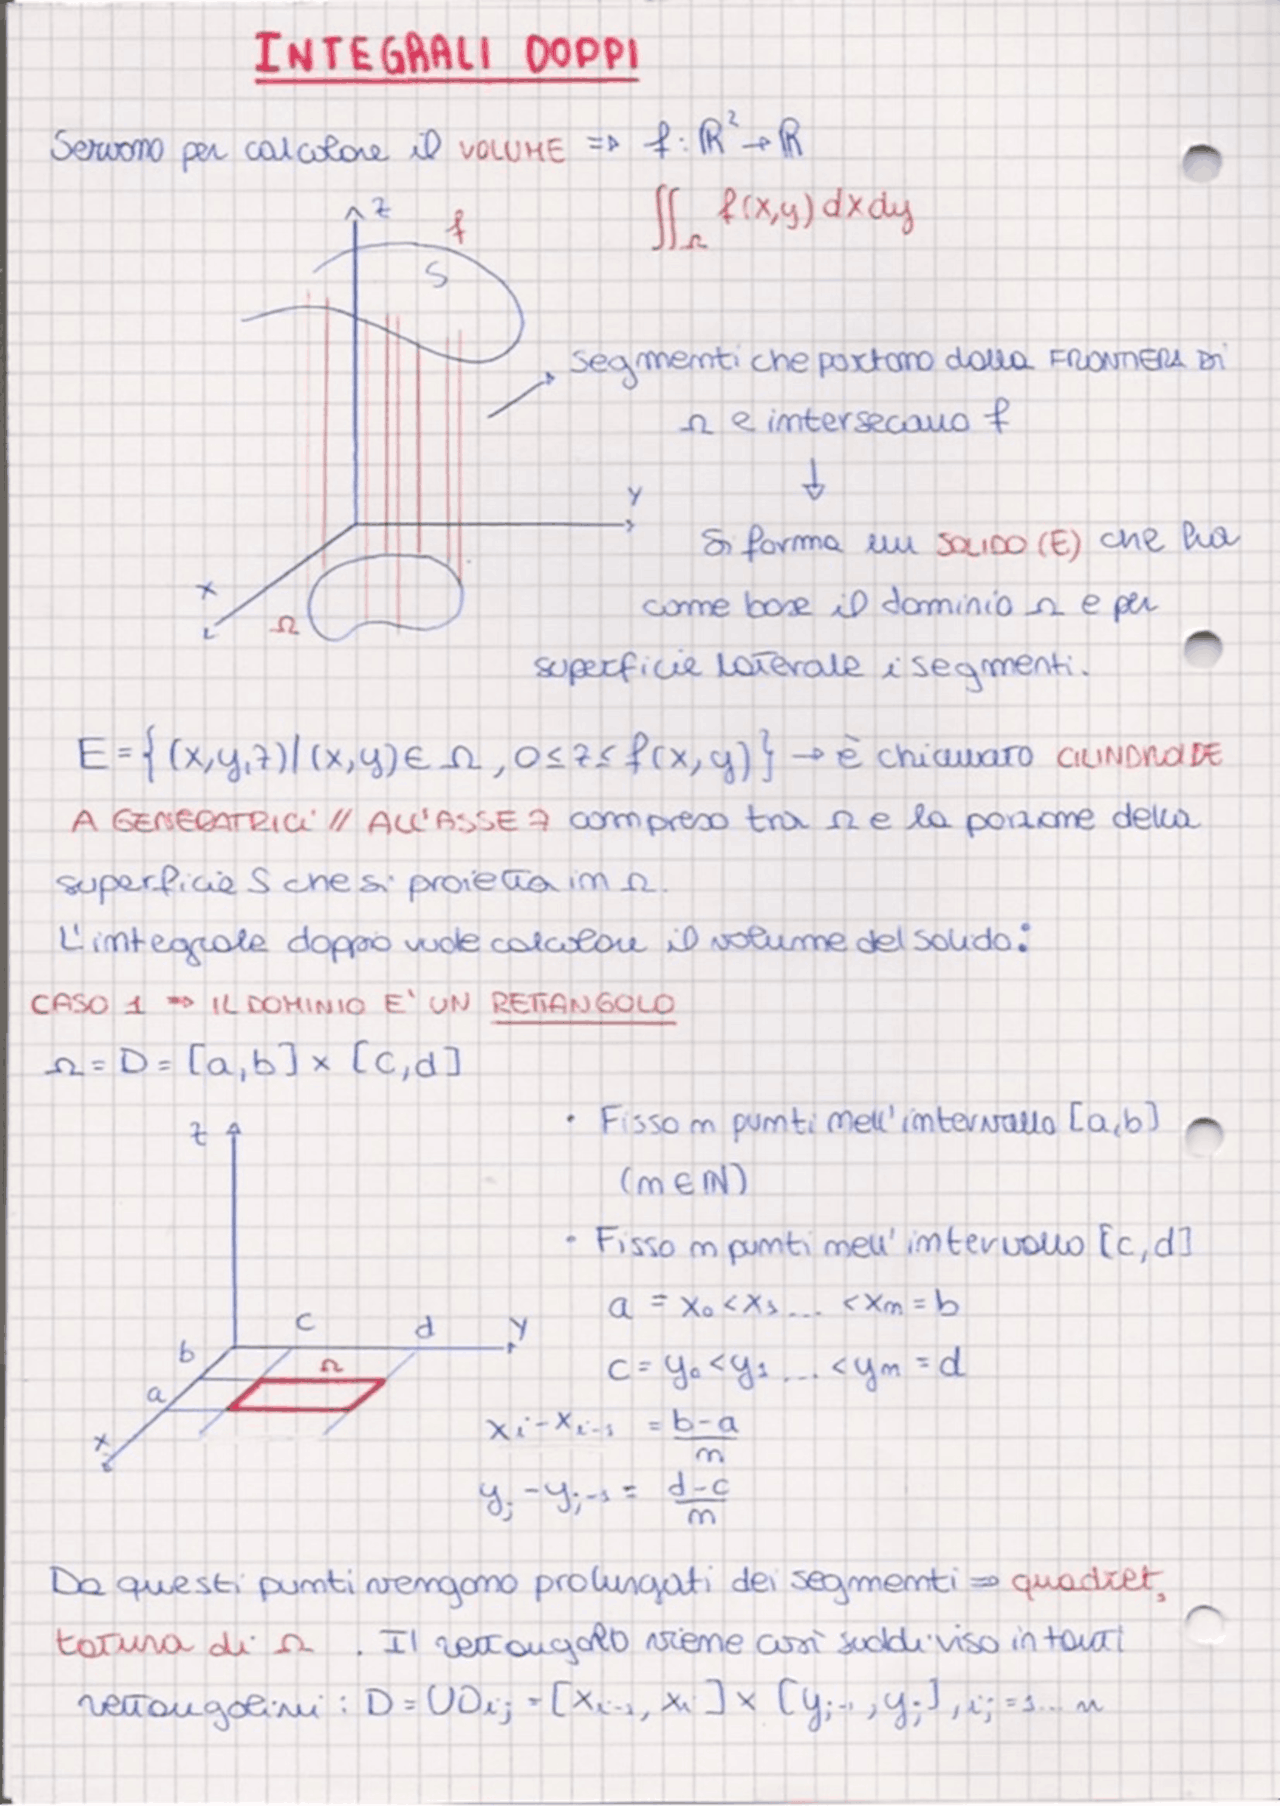 INTEGRALI DOPPI
Servono per calcolare il VOLUME => f: ℝ² → ℝ
∬_Ω f(x,y) dxdy
z
f
S
segmenti che partono dalla FRONTIERA Di
Ω e intersecano f
↓
y
Si forma un SOLIDO (E) che ha
x
come base il dominio Ω e per
Ω
superficie laterale i segmenti.
E = {(x,y,z) | (x,y) ∈ Ω, 0 ≤ z ≤ f(x,y)} → è chiamato CILINDROIDE
A GENERATRICI // ALL'ASSE z compreso tra Ω e la porzione della
superficie S che si proietta in Ω.
L'integrale doppio vuole calcolare il volume del solido:
CASO 1 => IL DOMINIO E' UN RETTANGOLO
Ω = D = [a,b] × [c,d]
• Fisso n punti nell'intervallo [a,b]
z
(n ∈ ℕ)
• Fisso n punti nell'intervallo [c,d]
a = x₀ < x₁ ... < xₙ = b
c d y
b Ω
c = y₀ < y₁ ... < yₙ = d
a
x
xᵢ - xᵢ₋₁ = (b-a)/n
yⱼ - yⱼ₋₁ = (d-c)/n
Da questi punti vengono prolungati dei segmenti => quadret,
tatura di Ω . Il rettangolo viene così suddiviso in tanti
rettangolini: D = ∪Dᵢⱼ = [xᵢ₋₁, xᵢ] × [yⱼ₋₁, yⱼ], i,j = 1... n